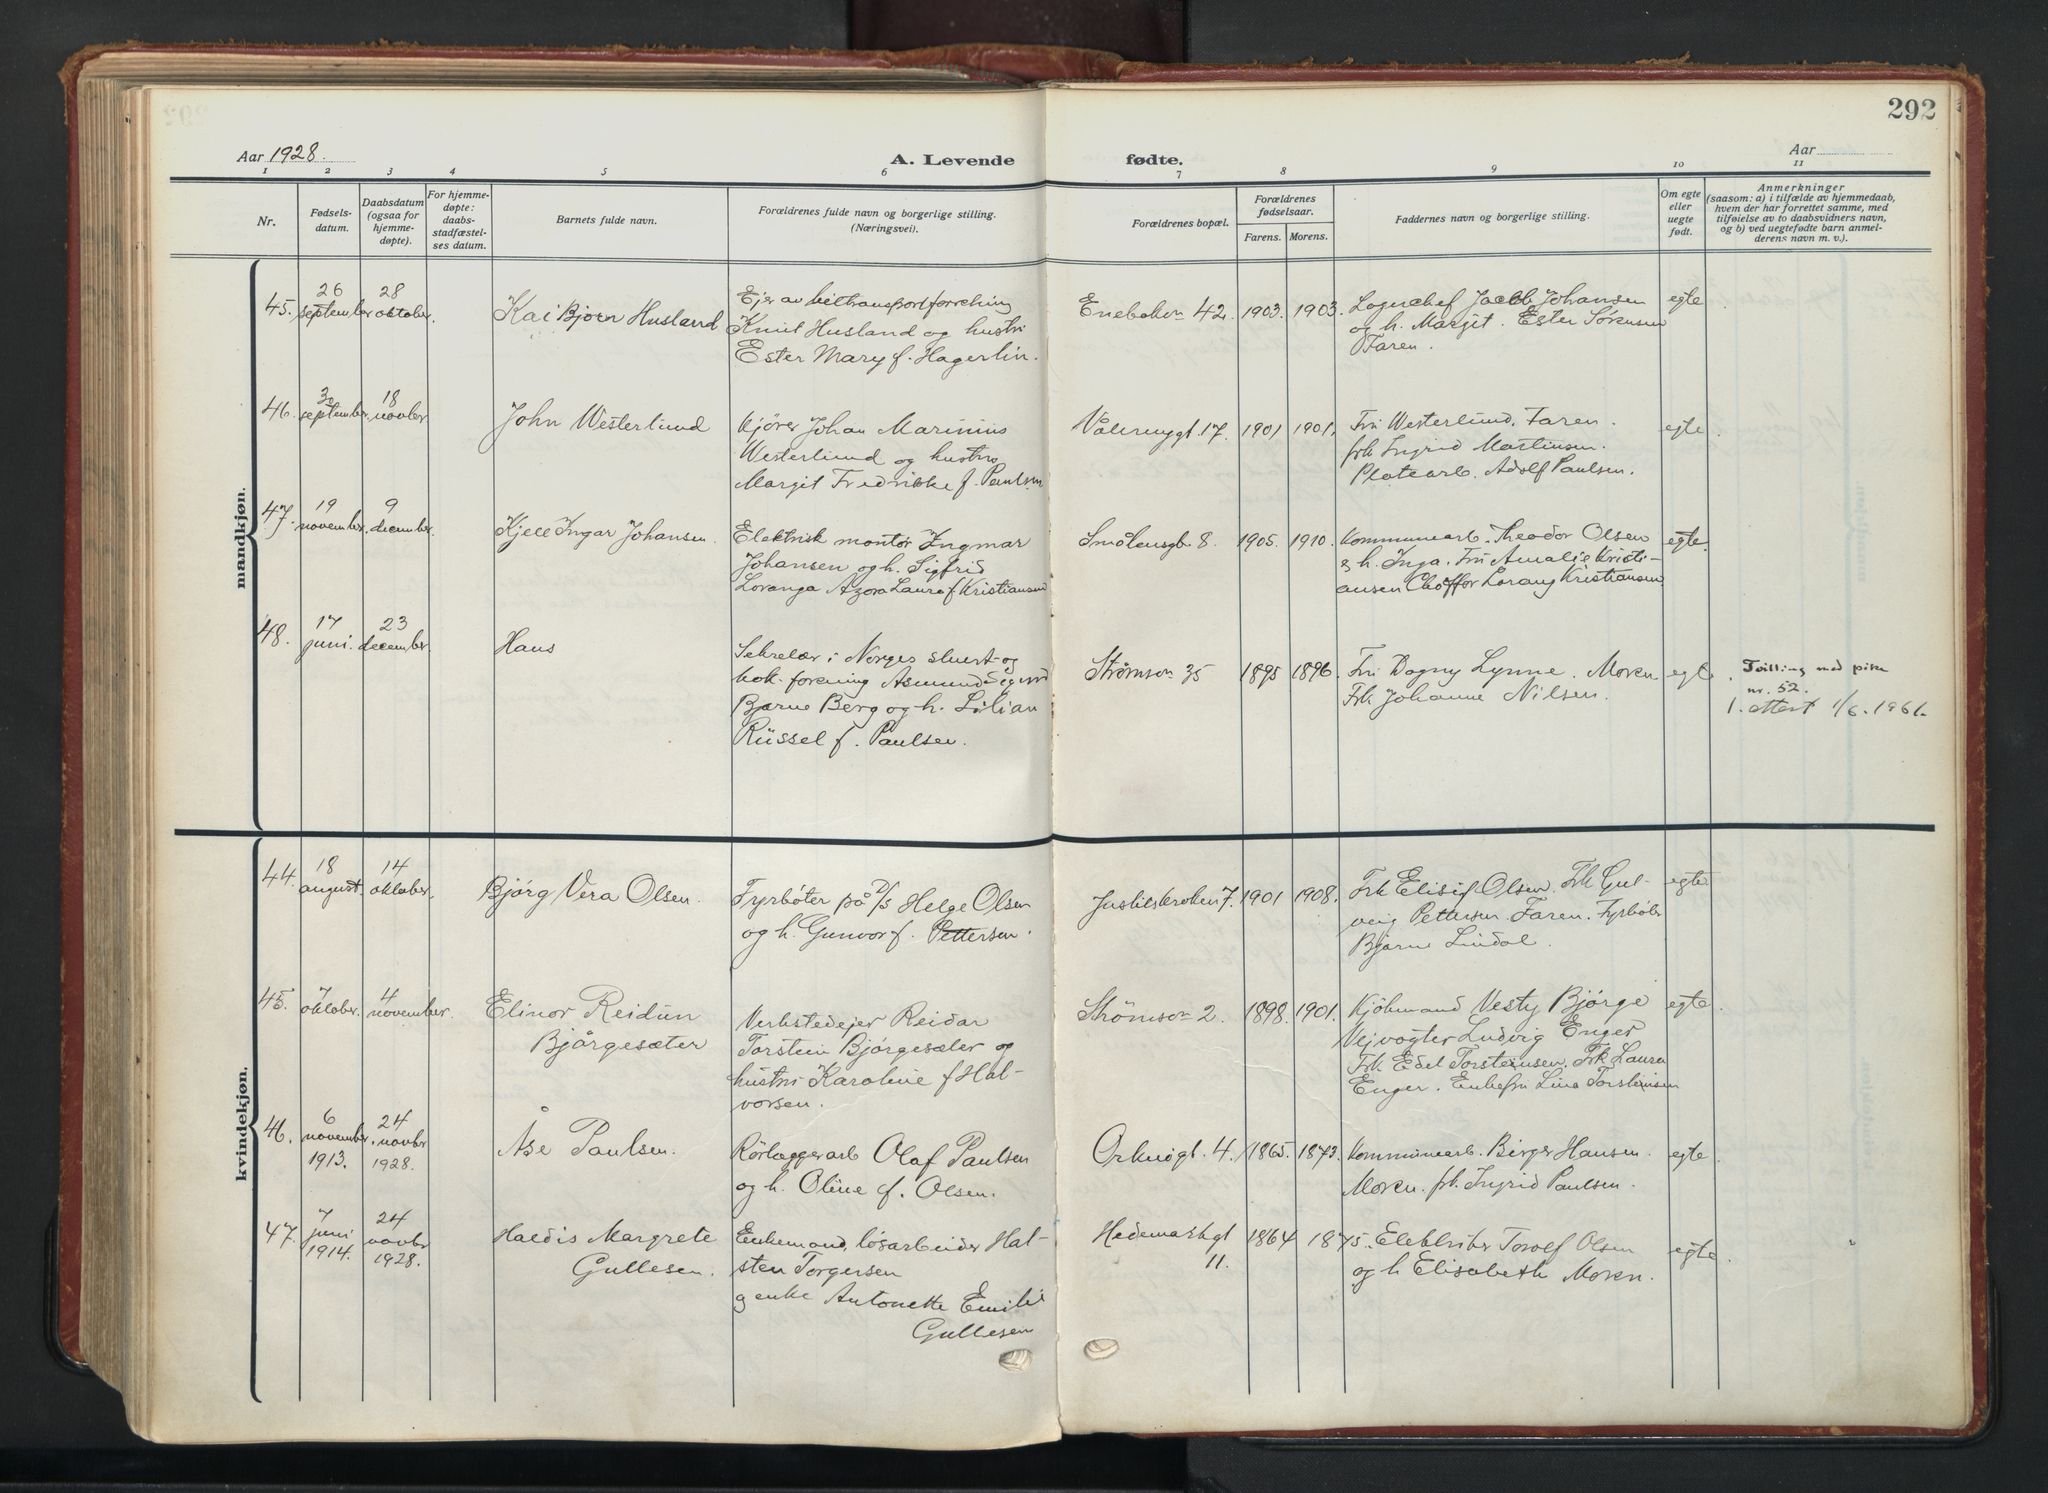 292
Aar 1928.
A. Levende fødte.
Aar
1 2 3 4 5 6 7 8 9 10 11
Nr.
Fødsels-
datum.
Daabsdatum
(ogsaa for
hjemme-
døpte).
For hjemme-
døpte:
daabs-
stadfæstel-
ses datum.
Barnets fulde navn.
Forældrenes fulde navn og borgerlige stilling.
(Næringsvei).
Forældrenes bopæl.
Forældrenes
fødselsaar.
Farens. Morens.
Faddernes navn og borgerlige stilling.
Om egte
eller
uegte
født.
Anmerkninger
(saasom: a) i tilfælde av hjemmedaab,
hvem der har forrettet samme, med
tilføielse av to daabsvidners navn,
og b) ved uegtefødte barn anmel-
derens navn m. v.).
mandkjøn.
45.
26
september
28
oktober.
Kai Bjørn Husland
Ejer av
Knut Husland og hustru
Ester Mary f. Hagerlin.
Enebakvn 42.
1903. 1903.
Lagerchef Jacob Johansen
og h. Margit. Ester Sørensen
Faren.
egte
46.
30
september.
18
novbr.
John Westerlund
Kjører Johan Marinius
Westerlund og hustru
Margit Fredrikke f. Paulsen
Vålerenggt. 17.
1901 1901.
Fru Westerlund. Faren.
frk Ingrid Martinsen.
Platearb. Adolf Paulsen.
egte
47.
19
november.
9
december.
Kjell Ingar Johansen.
Elektrisk montør Ingmar
Johansen og h. Sigfrid
Loranga Azora Laura f Kristiansen
Smålensgt 8.
1905. 1910.
Kommunearb. Theodor Olsen
& h. Inga. Fru Amalie Kristi-
ansen Chöffør Lorang Kristiansen
egte.
48.
17
juni.
23
december.
Hans
Sekretær i Norges
forening Asmund Sigurd
Bjarne Berg og h. Lilian
Rüssel f. Paulsen.
Strømsvn 35
1895 1896.
Fru Dagny Lynne. Moren
Frk Johanne Nilsen.
egte
Tvilling med pike
nr. 52.
1. attest 1/6. 1961.
kvindekjøn.
44.
18
august.
14
oktober.
Bjørg Vera Olsen.
Fyrbøter på D/S Helge Olsen
og h. Gunvor f. Pettersen.
7.
1901 1908.
Frk Elisif Olsen. Frk Gul-
veig Pettersen. Faren. Fyrbøter
Bjarne Lindal.
egte
45.
7
oktober.
4
november.
Elinor Reidun
Bjørgesæter
Verkstedejer Reidar
Torstein Bjørgesæter og
hustru Karoline f Hal-
vorsen.
Strömsvn 2.
1898. 1901.
Kjöbmand Vesty Bjørge
Vejvogter Ludvig Enger
Frk Edel Torsteinsen. Frk Laura
Enger. Enkefru Lina Torsteinsen
egte
46.
6
november
1913.
24
novbr
1928.
Åse Paulsen.
Rörlæggerarb Olaf Paulsen
og h. Oline f. Olsen.
Orknøgt. 4.
1865. 1873.
Kommunearb. Birger Hansen.
Moren. frk. Ingrid Paulsen.
egte
47.
7
juni
1914.
24
novbr
1928.
Haldis Margrete
Gullesen.
Enkemand, løsarbeider Hal-
sten Torgersen
og enke Antonette Emilie
Gullesen
Hedemarksgt
11.
1864 1875.
Torolf Olsen
og h Elisabeth Moren.
egte